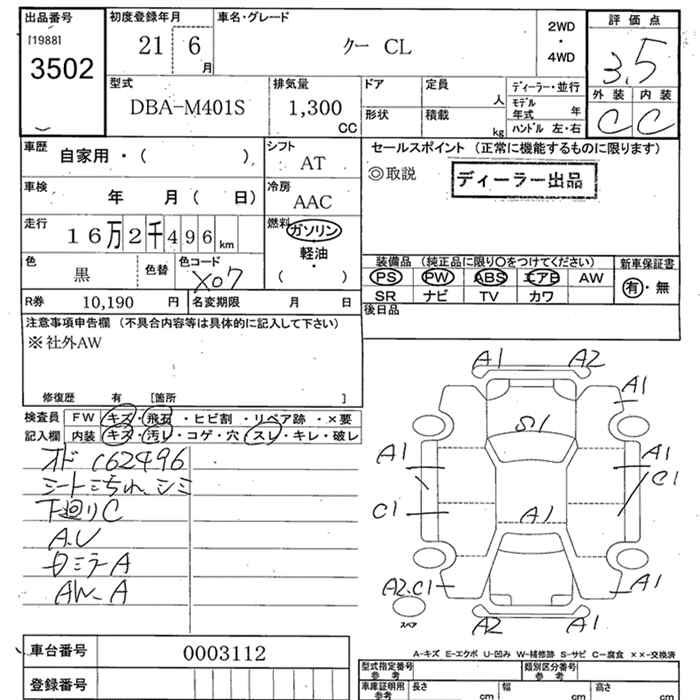 出品番号
[1988]
3502
初度登録年月
21 6 月
車名・グレード
クー CL
2WD
・
4WD
評価点
3.5
外装 内装
C C
型式
DBA-M401S
排気量
1,300 CC
ドア
定員 人
形状
積載 kg
ディーラー・並行
モデル年式 年
ハンドル 左・右
車歴
自家用・( )
シフト
AT
車検
年 月( 日)
冷房
AAC
走行
16万2千496km
燃料
ガソリン
軽油
・
( )
色
黒
色替
色コード
X07
R券 10,190 円
名変期限 月 日
セールスポイント (正常に機能するものに限ります)
◎取説
ディーラー出品
装備品 (純正品に限り○をつけてください)
新車保証書
PS PW ABS エアB AW
有・無
SR ナビ TV カワ
後日品
注意事項申告欄 (不具合内容等は具体的に記入して下さい)
※社外AW
修復歴 有 [箇所 ]
検査員 FW キズ・飛石・ヒビ割・リペア跡・×要
記入欄 内装 キズ・汚レ・コゲ・穴・スレ・キレ・破レ
オド 162496
シートこちれ、シミ
下廻りC
A.U
ロミラーA
AW-A
A1 A2
A1
S1
A1 A1
C1
C1
A1
A2.C1 A1
スペア
A2 A1
A-キズ E-エクボ U-凹み W-補修跡 S-サビ C-腐食 ××-交換済
車台番号 0003112
登録番号
型式指定番号
参考
類別区分番号
参考
車庫証明用
参考
長さ cm
幅 cm
高さ cm